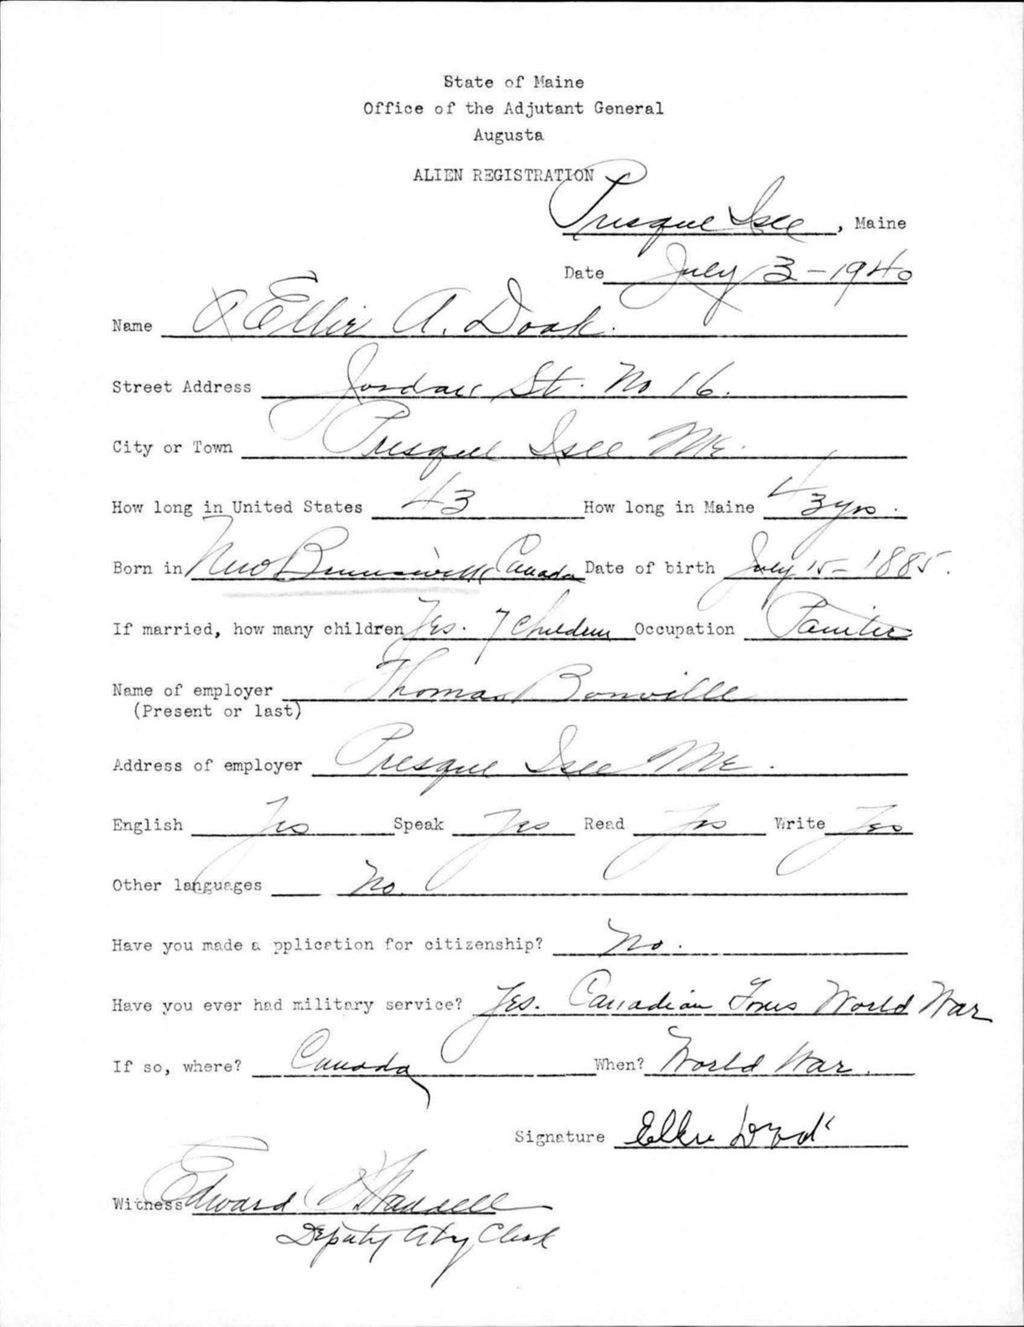 State of Maine
Office of the Adjutant General
Augusta
ALIEN REGISTRATION
Presque Isle, Maine
Date July 3-1940
Name X Ellie A. Doak.
Street Address Jordan St. No 16.
City or Town Presque Isle Me.
How long in United States 43 How long in Maine 43 yrs.
Born in New Brunswick Canada Date of birth July 15-1885.
If married, how many children Yes. 7 Children Occupation Painter
Name of employer Thomas Bonville
(Present or last)
Address of employer Presque Isle Me.
English Yes Speak Yes Read Yes Write Yes
Other languages No.
Have you made a pplication for citizenship? No.
Have you ever had military service? Yes. Canadian World War
If so, where? Canada When? World War.
Signature Ellie Doak
Witness Edward
Deputy City Clerk